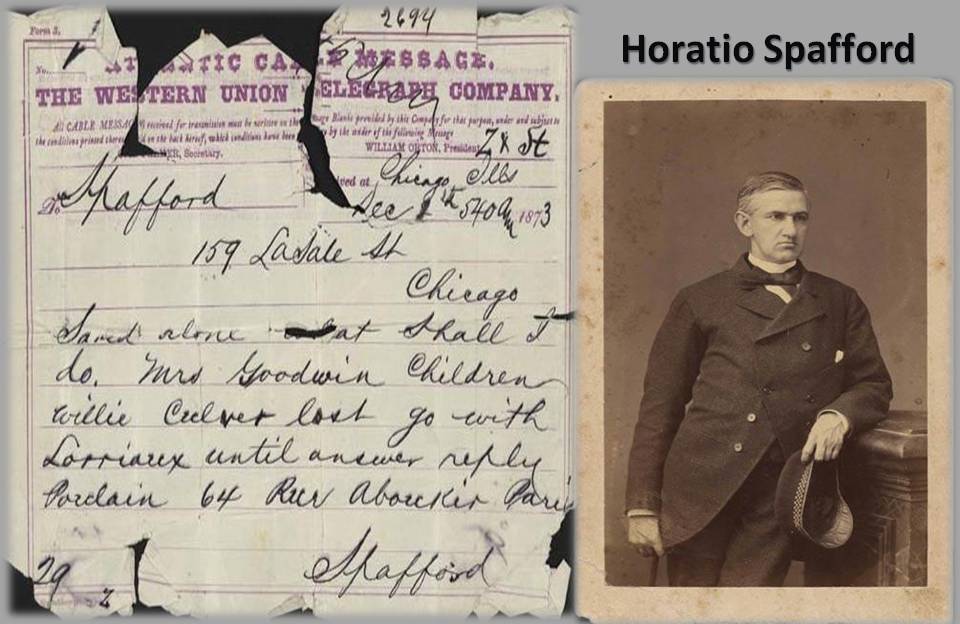 Horatio Spafford
2694
Form 2.
No.
ATLANTIC CABLE MESSAGE.
THE WESTERN UNION TELEGRAPH COMPANY.
ALL CABLE MESSAGES received for transmission must be written on the Message Blanks provided by this Company for this purpose, under and subject to
the conditions printed thereon on the back hereof, which conditions have been by the sender of the following Message
Secretary. WILLIAM ORTON, President
St
Received at Chicago Ills
To Spafford
Dec 540 1873
159 LaSale St
Chicago
Saved alone what shall I
do. Mrs Goodwin Children
Willie Culver lost go with
Lorriaux until answer reply
Porclain 64 Rue Aboukir Paris
Spafford
29
2